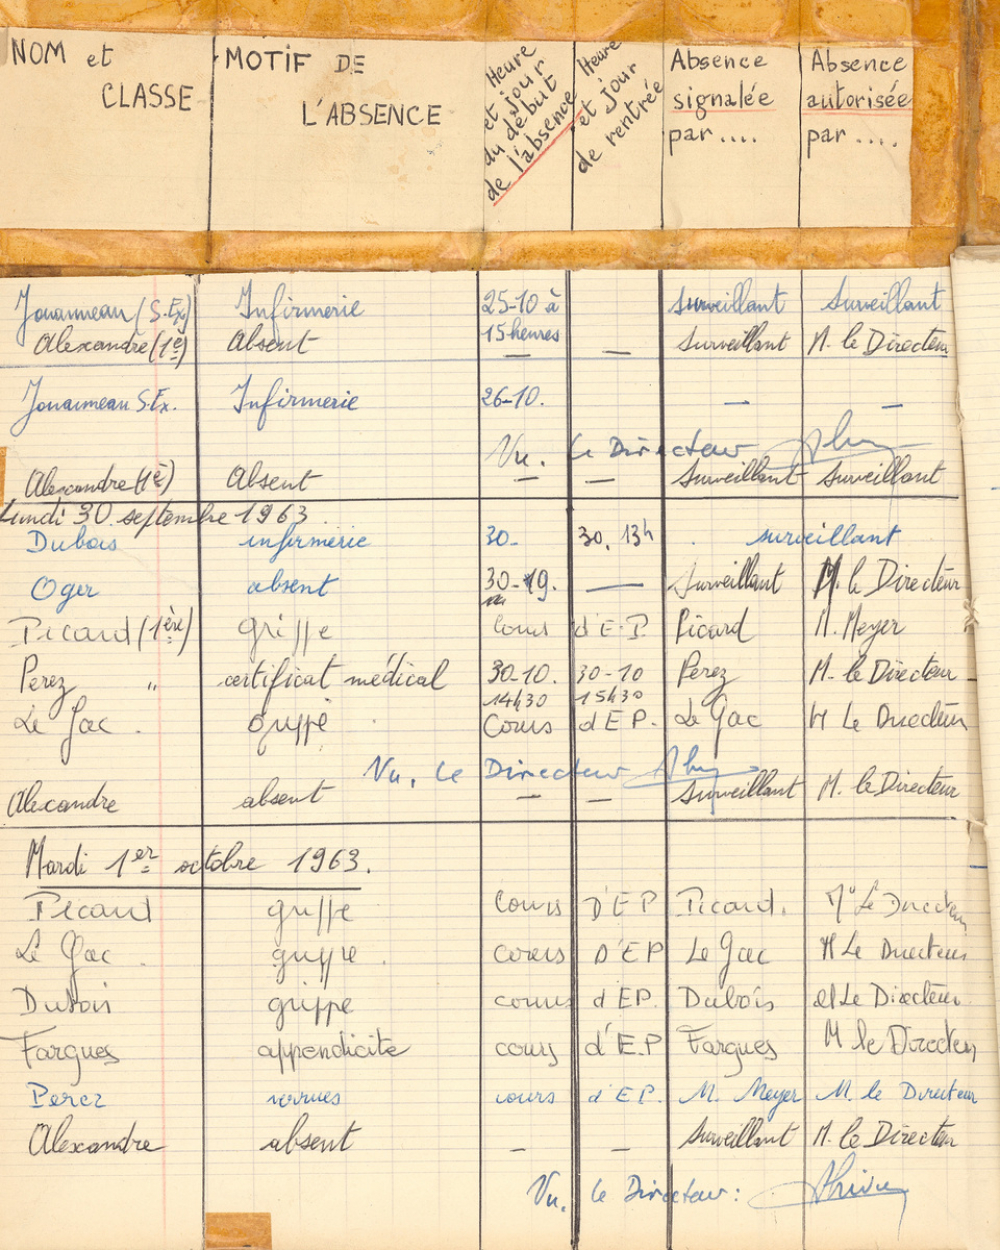 NOM et CLASSE MOTIF DE L'ABSENCE Heure et jour du début de l'absence Heure et jour de rentrée Absence signalée par .... Absence autorisée par ....
Jouanneau (S.Ex) Infirmerie 25-10 à 15 heures surveillant surveillant
Alexandre (1è) Absent — — surveillant M. le Directeur
Jouanneau S.Ex. Infirmerie 26-10. — —
Vu. le Directeur
Alexandre (1è) Absent — — surveillant surveillant
Lundi 30 septembre 1963.
Dubois infirmerie 30- 30. 13h surveillant
Oger absent 30-19. — surveillant M. le Directeur
Picard (1ère) grippe cours d'E.P. Picard M. Meyer
Perez " certificat médical 30-10. 14h30 30-10 15h30 Perez M. le Directeur
Le Gac. grippe Cours d'EP. Le Gac M Le Directeur
Vu. le Directeur
Alexandre absent — — surveillant M. le Directeur
Mardi 1er octobre 1963.
Picard grippe cours D'EP Picard. Mr Le Directeur
Le Gac. grippe. cours D'EP Le Gac M Le Directeur
Dubois grippe cours d'EP. Dubois M Le Directeur
Fargues appendicite cours d'E.P Fargues M le Directeur
Perez verrues cours d'EP. M. Meyer M. le Directeur
Alexandre absent — — surveillant M. le Directeur
Vu. le Directeur :